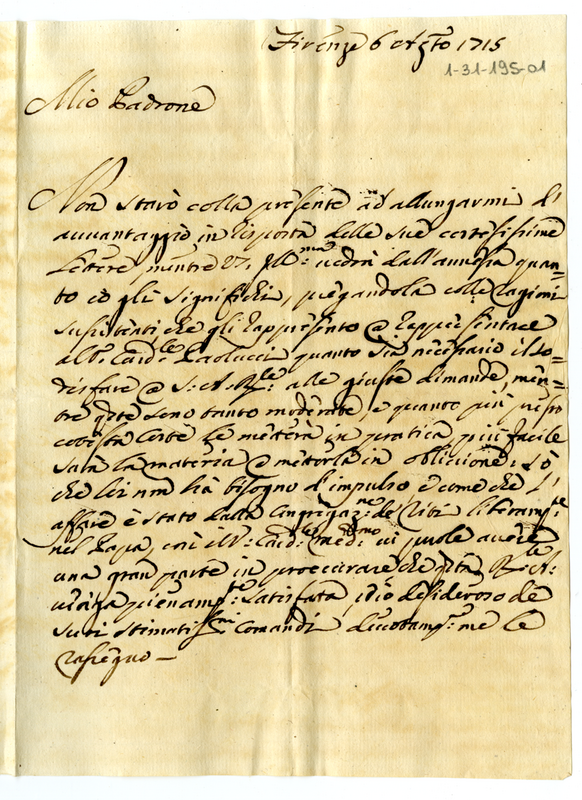 Firenze 6 Agsto 1715
1-31-195-01
Mio Padrone
Non starò colla presente ad allungarmi d'
avvantaggio in risposta delle sue cortesissime
lettere, mentre VS. Illma vedrà dall'annessa quan=
to io gli significhi, pregandola colle ragioni
sussistenti che gli rappresento a rappresentare
al Sr. Cardle Paolucci quanto sia necessario il so=
disfare a S: A: Rle: alle giuste dimande, men=
tre qste sono tanto moderate, e quanto più presto
cotesta Corte le metterà in pratica, più facile
sarà la materia a mettersi in oblivione, sò
che lei non hà bisogno d'impulso e come che l'
affare è stato dalla Congregazne de Riti liberamte
nel Papa, così il Sr: Cardle medesmo vi puole avere
una gran parte in proccurare che qsta R: Ale
venga pienamte: satisfatta, ed io desideroso de
suoi stimatismi: comandi divotampte: me le
rasegno —